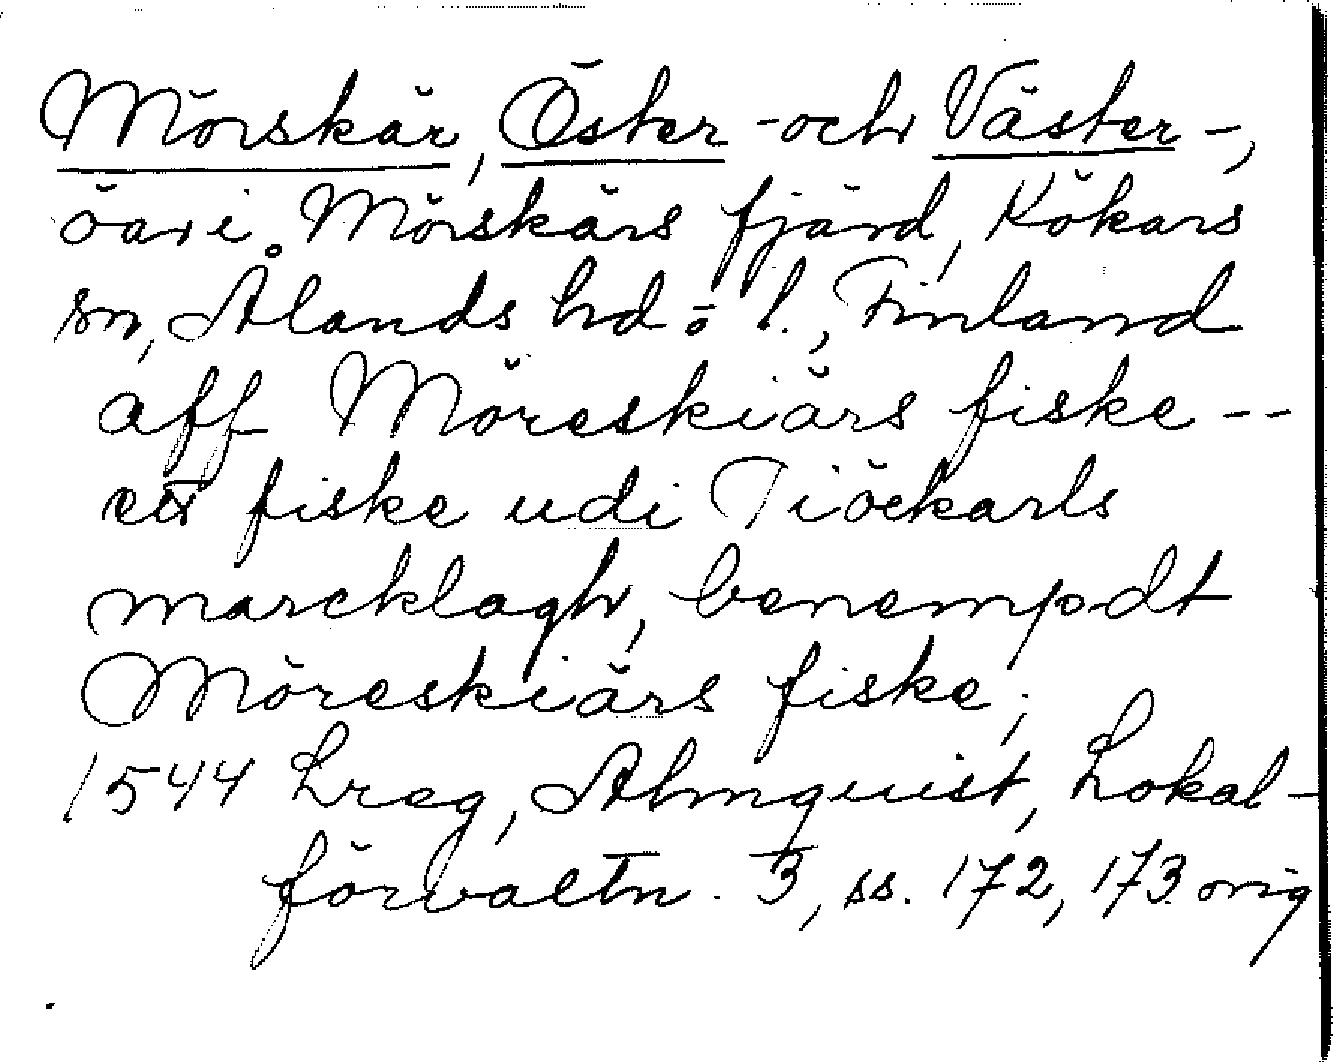 Mörskär, Öster- och Väster-,
öar i Mörskärs fjärd, Kökars
sn, Ålands hd o l., Finland
aff Möreskiärs fiske --
ett fiske udi Tiöckarls
marcklagh, benempdt
Möreskiärs fiske;
1544 Lreg, Almquist, Lokal-
förvaltn. 3, ss. 172, 173 orig